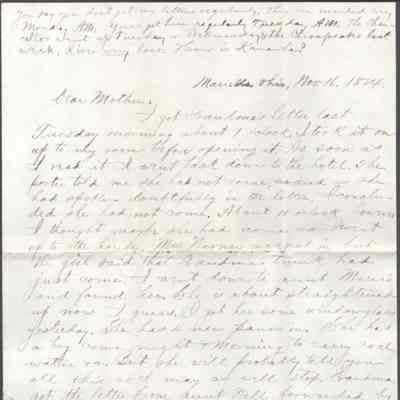 You say you don't get my letters regularly. They are mailed every
Monday A.M. You ought to get them regularly Tuesday A.M. The
went up Tuesday or Wednesday & the Chesapeake last
week. River very low. How is Kanawha?
Marietta Ohio, Nov. 16, 1874.
Dear Mother:
I got Grandma's letter last
Tuesday morning about 1 o'clock. I took it on
up to my room before opening it. As soon as
I read it I went back down to the hotel. The
porter told me she had not come, and as she
had spoken doubtfully in the letter, I conclu-
ded she had not come. About 10 o'clock
I thought maybe she had come so I went
up to the
the girl said that Grandma's trunk had
just come. I went down to aunt Maria's
and found her. She is about straightened
up now I guess. I put her some window glass
yesterday. She has a new
a boy come night & morning to carry coal
water &c. But she will probably tell you
all this so I may as well stop. Grandma
got the letter from aunt Bell forwarded by